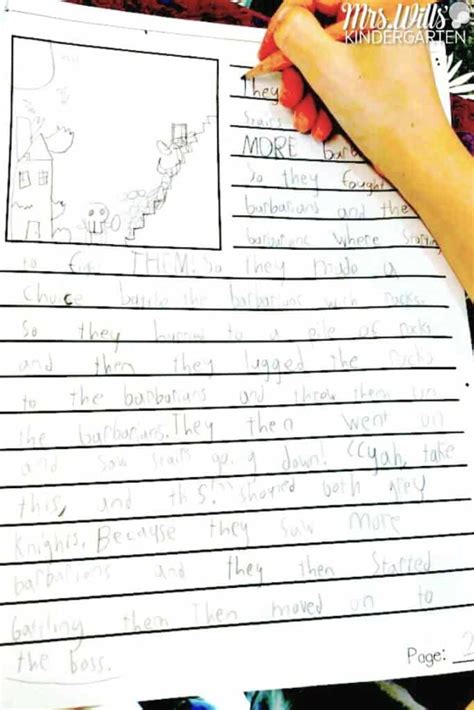 Mrs. Wills'
KINDERGARTEN
They
Stairs
MORE barb
So they fought
barbarians and the
barbarians where starting
to fight THEM! So they made a
Choice battle the barbarians with rocks.
So they hurried to a pile of rocks
and then they lugged the rocks
to the barbarians and throw them on
the barbarians. They then went on
and saw stairs going down! "Yah, take
this, and this!" shouted both grey
Knights. Because they saw more
barbarians and they then Started
battling them Then moved on to
the boss.
Page: 2